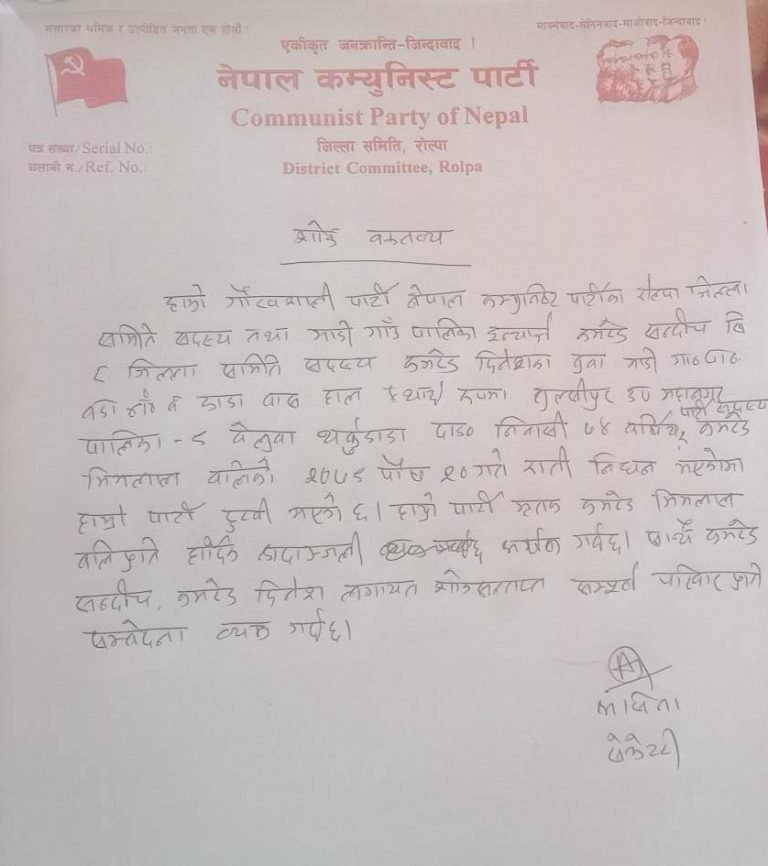 संसारका श्रमिक र उत्पीडित जनता एक होऔं !
मार्क्सवाद-लेनिनवाद-माओवाद-जिन्दावाद !
एकीकृत जनक्रान्ति-जिन्दावाद !
नेपाल कम्युनिस्ट पार्टी
Communist Party of Nepal
जिल्ला समिति, रोल्पा
District Committee, Rolpa
पत्र संख्या/Serial No.:
चलानी न./Ref. No.:
शोक वक्तव्य
हाम्रो गौरवशाली पार्टी नेपाल कम्युनिष्ट पार्टीका रोल्पा जिल्ला
समिति सदस्य तथा माडी गाउँ पालिका इन्चार्ज कमरेड सन्दीप
र जिल्ला समिति सदस्य कमरेड दिनेशका बुवा माडी गा०पा०
वडा डाडा हाल स्थायी रुपमा तुलसीपुर उप महानगर
पालिका - ८ वेलुवा थर्कुडाडा दाङ० निवासी ७४ वर्षिय पार्टी सदस्य कमरेड
भिमलाल वलिको पौष २० गते राती निधन भएकोमा
हाम्रो पार्टी दुःखी भएको छ। हाम्रो पार्टी मृतक कमरेड भिमलाल
वलि प्रति हार्दिक श्रदाञ्जली अर्पण गर्दछ। साथै कमरेड
सन्दीप, कमरेड दिनेश लगायत शोकसन्तप्त सम्पूर्ण परिवार प्रति
सम्वेदना व्यक्त गर्दछ।
सेक्रेटरी